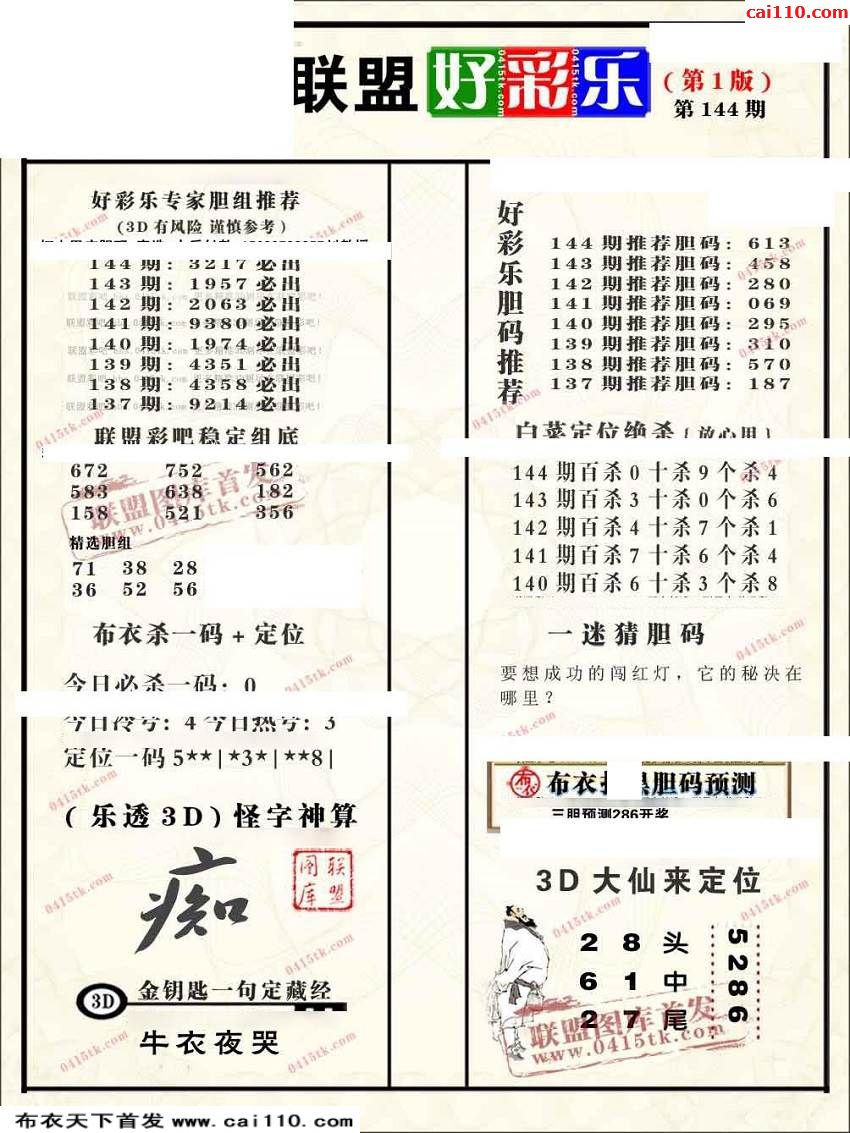 cai110.com
联盟好彩乐
(第1版)
第144期
好彩乐专家胆组推荐
(3D有风险 谨慎参考)
144期: 3217必出
143期: 1957必出
142期: 2063必出
141期: 9380必出
140期: 1974必出
139期: 4351必出
138期: 4358必出
137期: 9214必出
联盟彩吧稳定组底
672 752 562
583 638 182
158 521 356
精选胆组
71 38 28
36 52 56
布衣杀一码+定位
今日必杀一码: 0
今日冷号: 4 今日热号: 3
定位一码 5**|*3*|**8|
(乐透3D)怪字神算
痴
联盟图库
3D 金钥匙一句定藏经
牛衣夜哭
好彩乐胆码推荐
144期推荐胆码: 613
143期推荐胆码: 458
142期推荐胆码: 280
141期推荐胆码: 069
140期推荐胆码: 295
139期推荐胆码: 310
138期推荐胆码: 570
137期推荐胆码: 187
白菜定位绝杀{放心用}
144期百杀0十杀9个杀4
143期百杀3十杀0个杀6
142期百杀4十杀7个杀1
141期百杀7十杀6个杀4
140期百杀6十杀3个杀8
一迷猜胆码
要想成功的闯红灯，它的秘决在
哪里？
布衣 胆码预测
三胆预测286开奖
3D大仙来定位
2 8 头
6 1 中
2 7 尾
5286
联盟图库首发
www.0415tk.com
联盟图库首发
www.0415tk.com
布衣天下首发 www.cai110.com